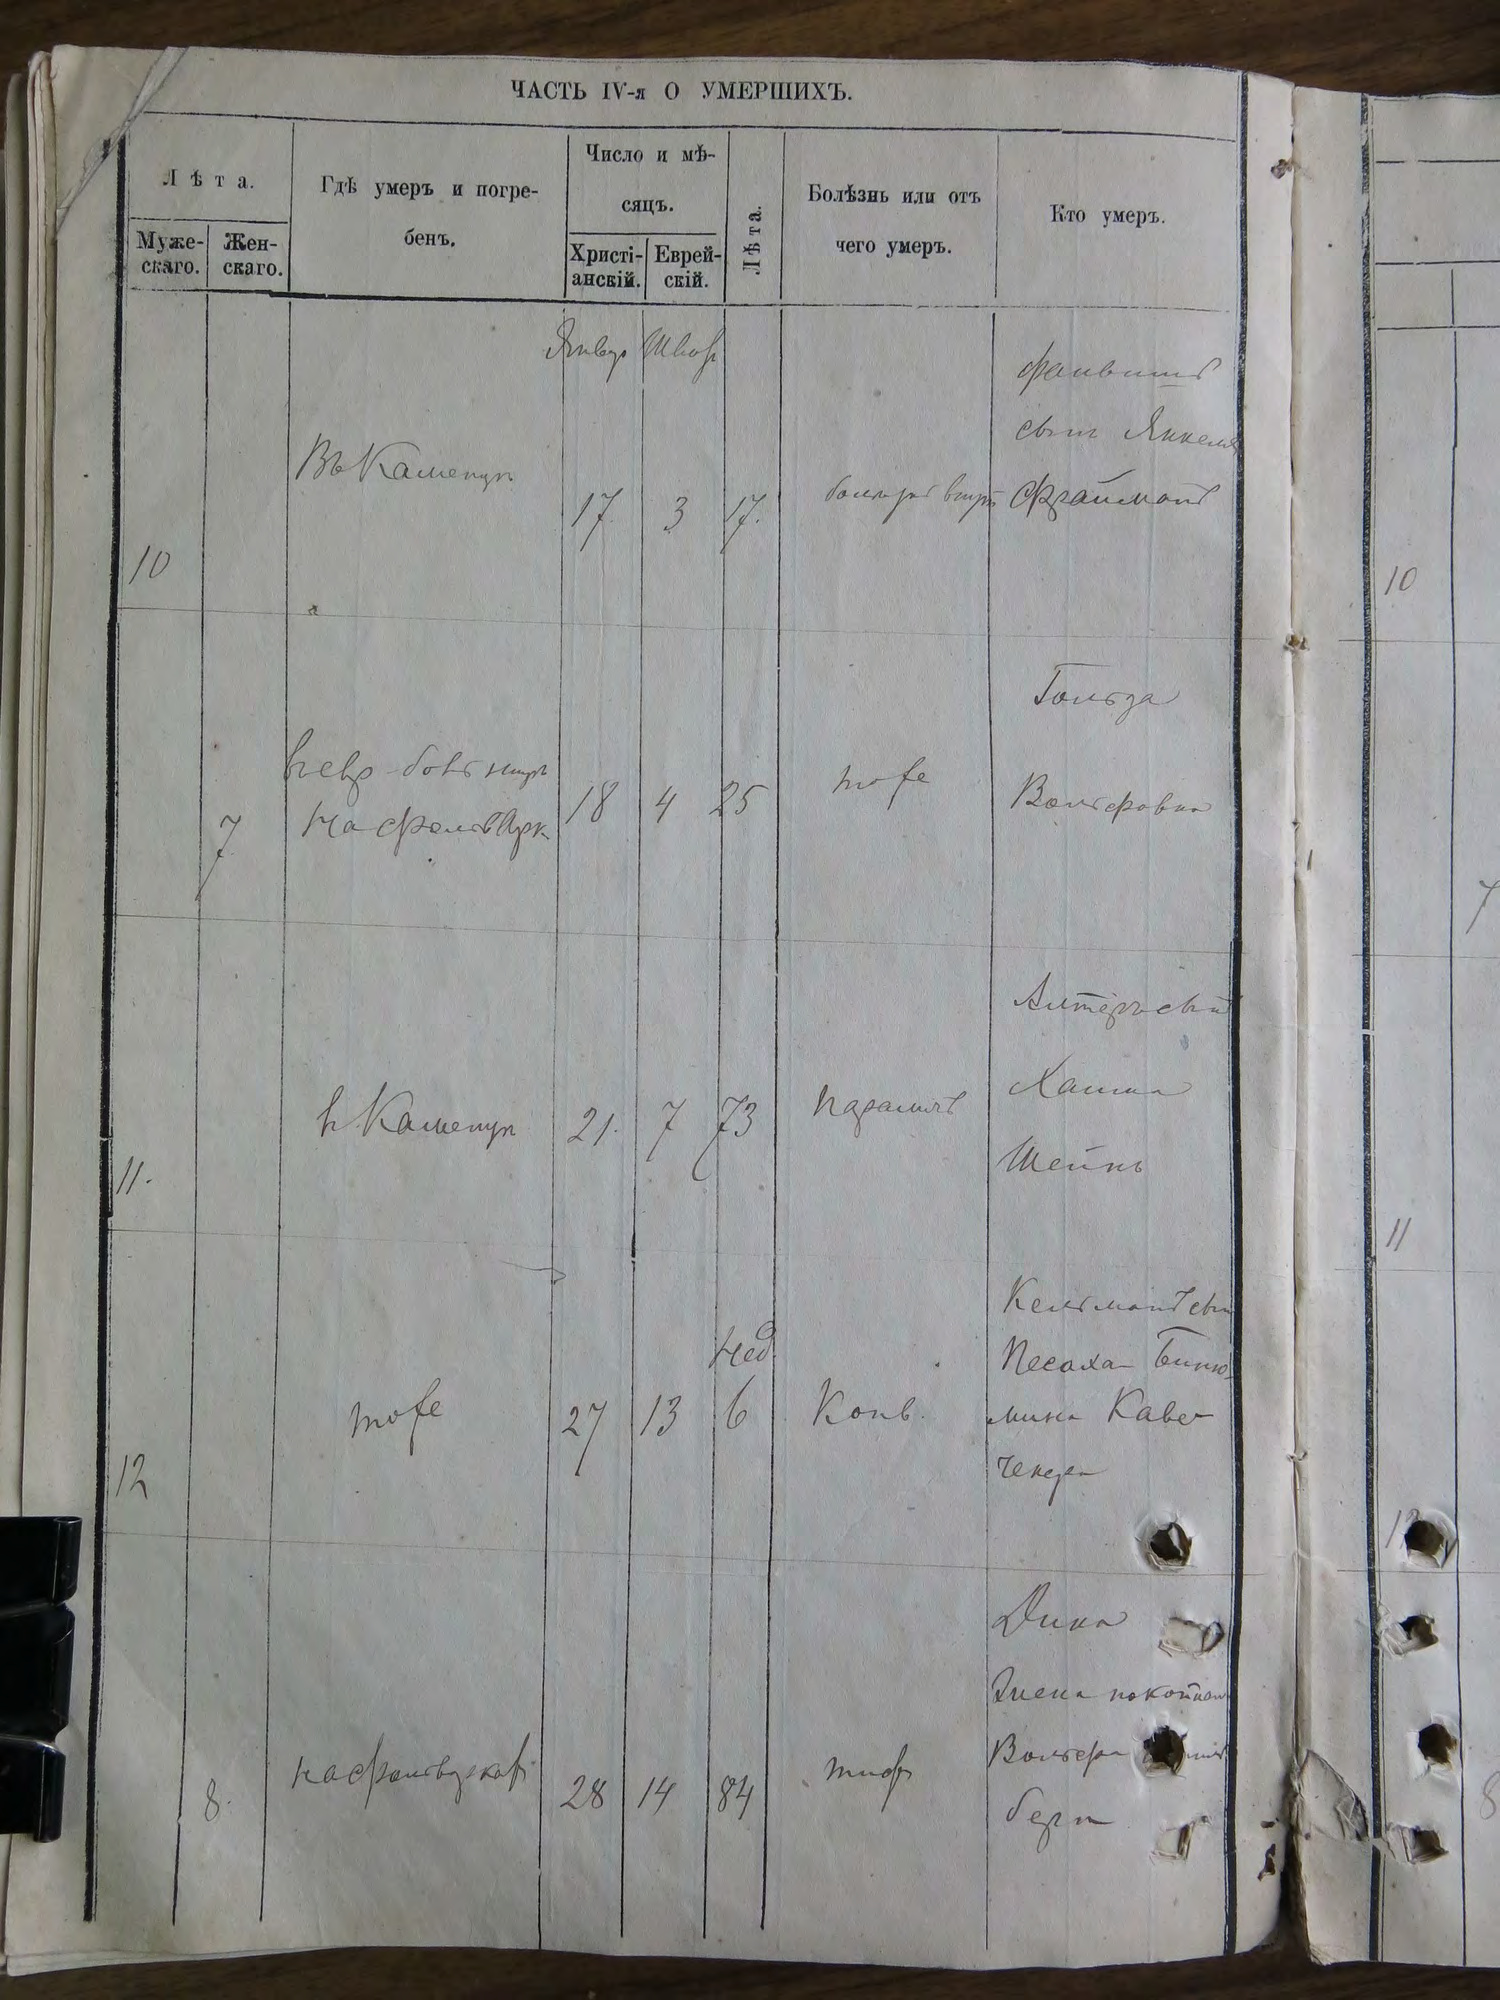 ЧАСТЬ IV-я О УМЕРШИХЪ.
Лѣта.
Муже-
скаго.
Жен-
скаго.
Гдѣ умеръ и погре-
бенъ.
Число и мѣ-
сяцъ.
Христі-
анскій.
Еврей-
скій.
Лѣта.
Болѣзнь или отъ
чего умеръ.
Кто умеръ.
10
Въ Каменцѣ
Январ
17
3
17.
Файвишъ
сынъ Янкеля
Фраймонъ
7
на
18
4
25
тоже
Гольда
Вольфовна
11.
в Каменцѣ
21.
7
73
Параличъ
сынъ
Хаима
12
тоже
27
13
нед.
6
Конв.
Кельманъ сын
Песаха Биню-
мина
8.
28
14
84
тифъ
Дина
Жена покойнаго
Вольфа
берга
10
7
11
12
8